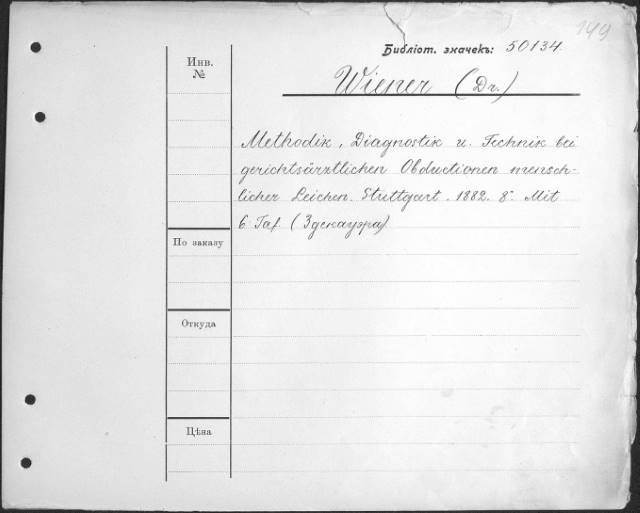 149
Библіот. значекъ: 50134.
Инв.
№
Wiener (Dr.)
Methodik, Diagnostik u. Technik bei
gerichtsärztlichen Obductionen mensch-
licher Leichen. Stuttgart. 1882. 8°. Mit
6 Taf. (3 декауэра)
По заказу
Откуда
Цѣна